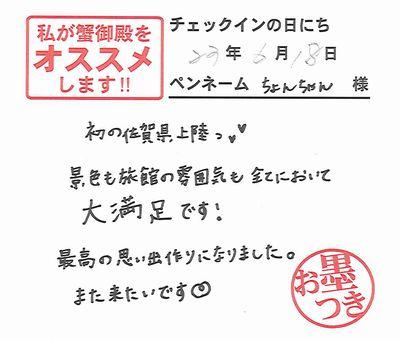 私が蟹御殿を
オススメ
します!!
チェックインの日にち
23年6月18日
ペンネーム ちょんちゃん 様
初の佐賀県上陸っ
景色も旅館の雰囲気も全てにおいて
大満足です!
最高の思い出作りになりました。
また来たいです
お墨つき